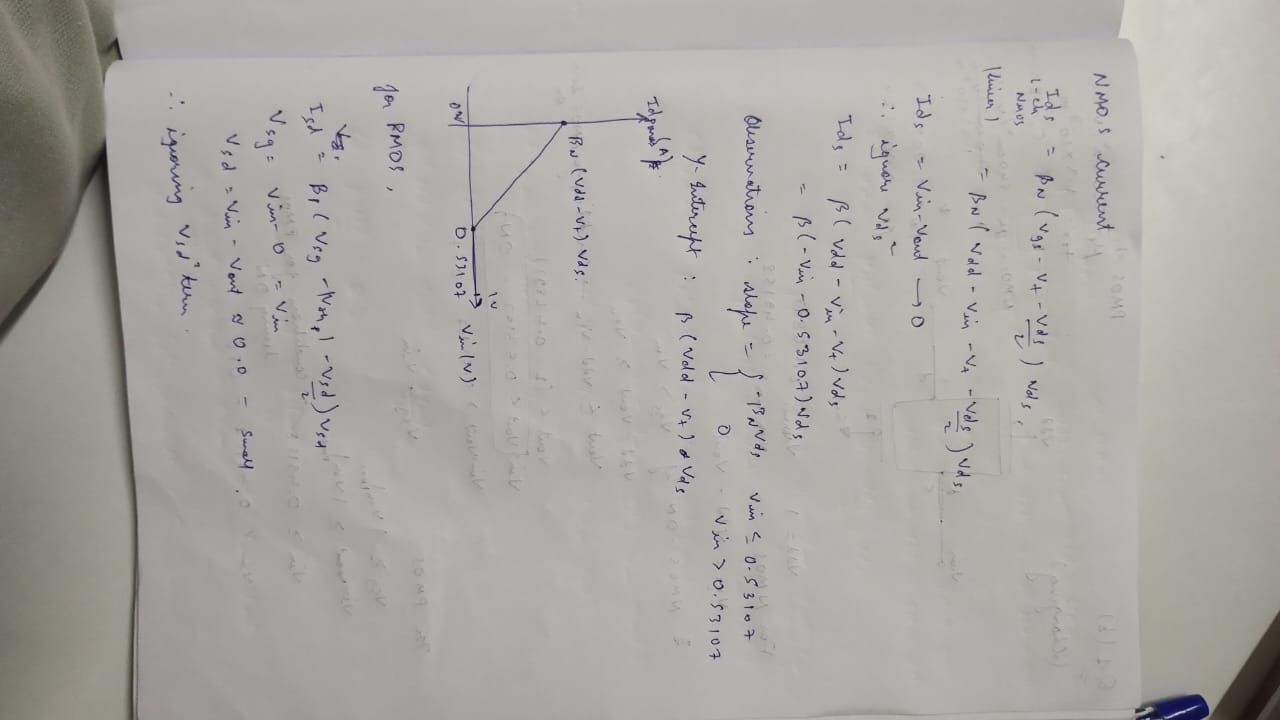 NMOS current
Ids = βN (Vgs - Vt - Vds/2) Vds,
L-ch
NMOS
(linear)
= βN (Vdd - Vin - Vt - Vds/2) Vds,
Ids = Vin - Vout → 0
∴ ignore Vds²
Ids = β (Vdd - Vin - Vt) Vds
= β (-Vin - 0.53107) Vds
Observations : slope = { -βN Vds Vin ≤ 0.53107
0 Vin > 0.53107
Y-Intercept : β (Vdd - Vt) Vds
βN (Vdd - Vt) Vds.
0V
0.53107
1V
Vin(V)
for PMOS,
Isd = βp (Vsg - |Vthp| - Vsd/2) Vsd
Vsg = Vin - 0 = Vin
Vsd = Vin - Vout ≈ 0.0 - small.
∴ ignoring Vsd² term.